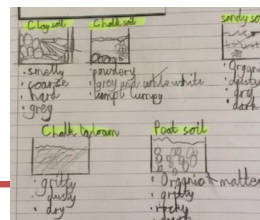 Clay soil
• smelly
• coarse
• hard
• grey
Chalk soil
• powdery
• grey and white
• lumpy
sandy so
• Organi
• dusty
• dry
• dark
Chalky loam
• gritty
• dusty
• dry
Peat soil
• Organic matter
• gritty
• rocky